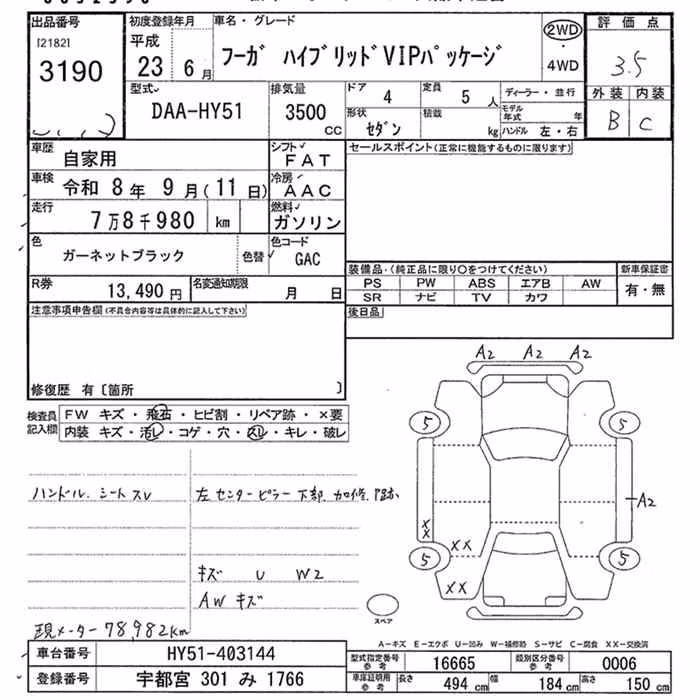 出品番号 初度登録年月 車名・グレード 2WD 評価点
[2182] 平成 フーガ ハイブリッドVIPパッケージ ・ 3.5
3190 23年 6月 4WD
型式 排気量 ドア 4 定員 5人 ディーラー・並行 外装 内装
DAA-HY51 3500cc 形状 セダン 積載 kg モデル年式 年 B C
ハンドル 左・右
車歴 自家用 シフト FAT セールスポイント(正常に機能するものに限ります)
車検 令和 8年 9月(11日) 冷房 AAC
走行 7万8千980 km 燃料 ガソリン
色 ガーネットブラック 色替 色コード GAC
装備品・(純正品に限り○をつけてください) 新車保証書
R券 13,490円 名変通知期限 月 日 PS PW ABS エアB AW 有・無
SR ナビ TV カワ
注意事項申告欄(不具合内容等は具体的に記入して下さい) 後日品
修復歴 有〔箇所 〕
検査員 FW キズ・飛石・ヒビ割・リペア跡・×要
記入欄 内装 キズ・汚レ・コゲ・穴・スレ・キレ・破レ
A2 A2 A2
5 5
ハンドル、シートスレ 左センターピラー下部、加修跡 A2
XX
5 XX 5
キズ U W2 XX
AW キズ
スペア
現メーター78982km
A-キズ E-エクボ U-凹み W-補修跡 S-サビ C-腐食 XX-交換済
車台番号 HY51-403144 型式指定番号 参考 16665 類別区分番号 参考 0006
登録番号 宇都宮 301 み 1766 車庫証明用 参考 長さ 494cm 幅 184cm 高さ 150cm